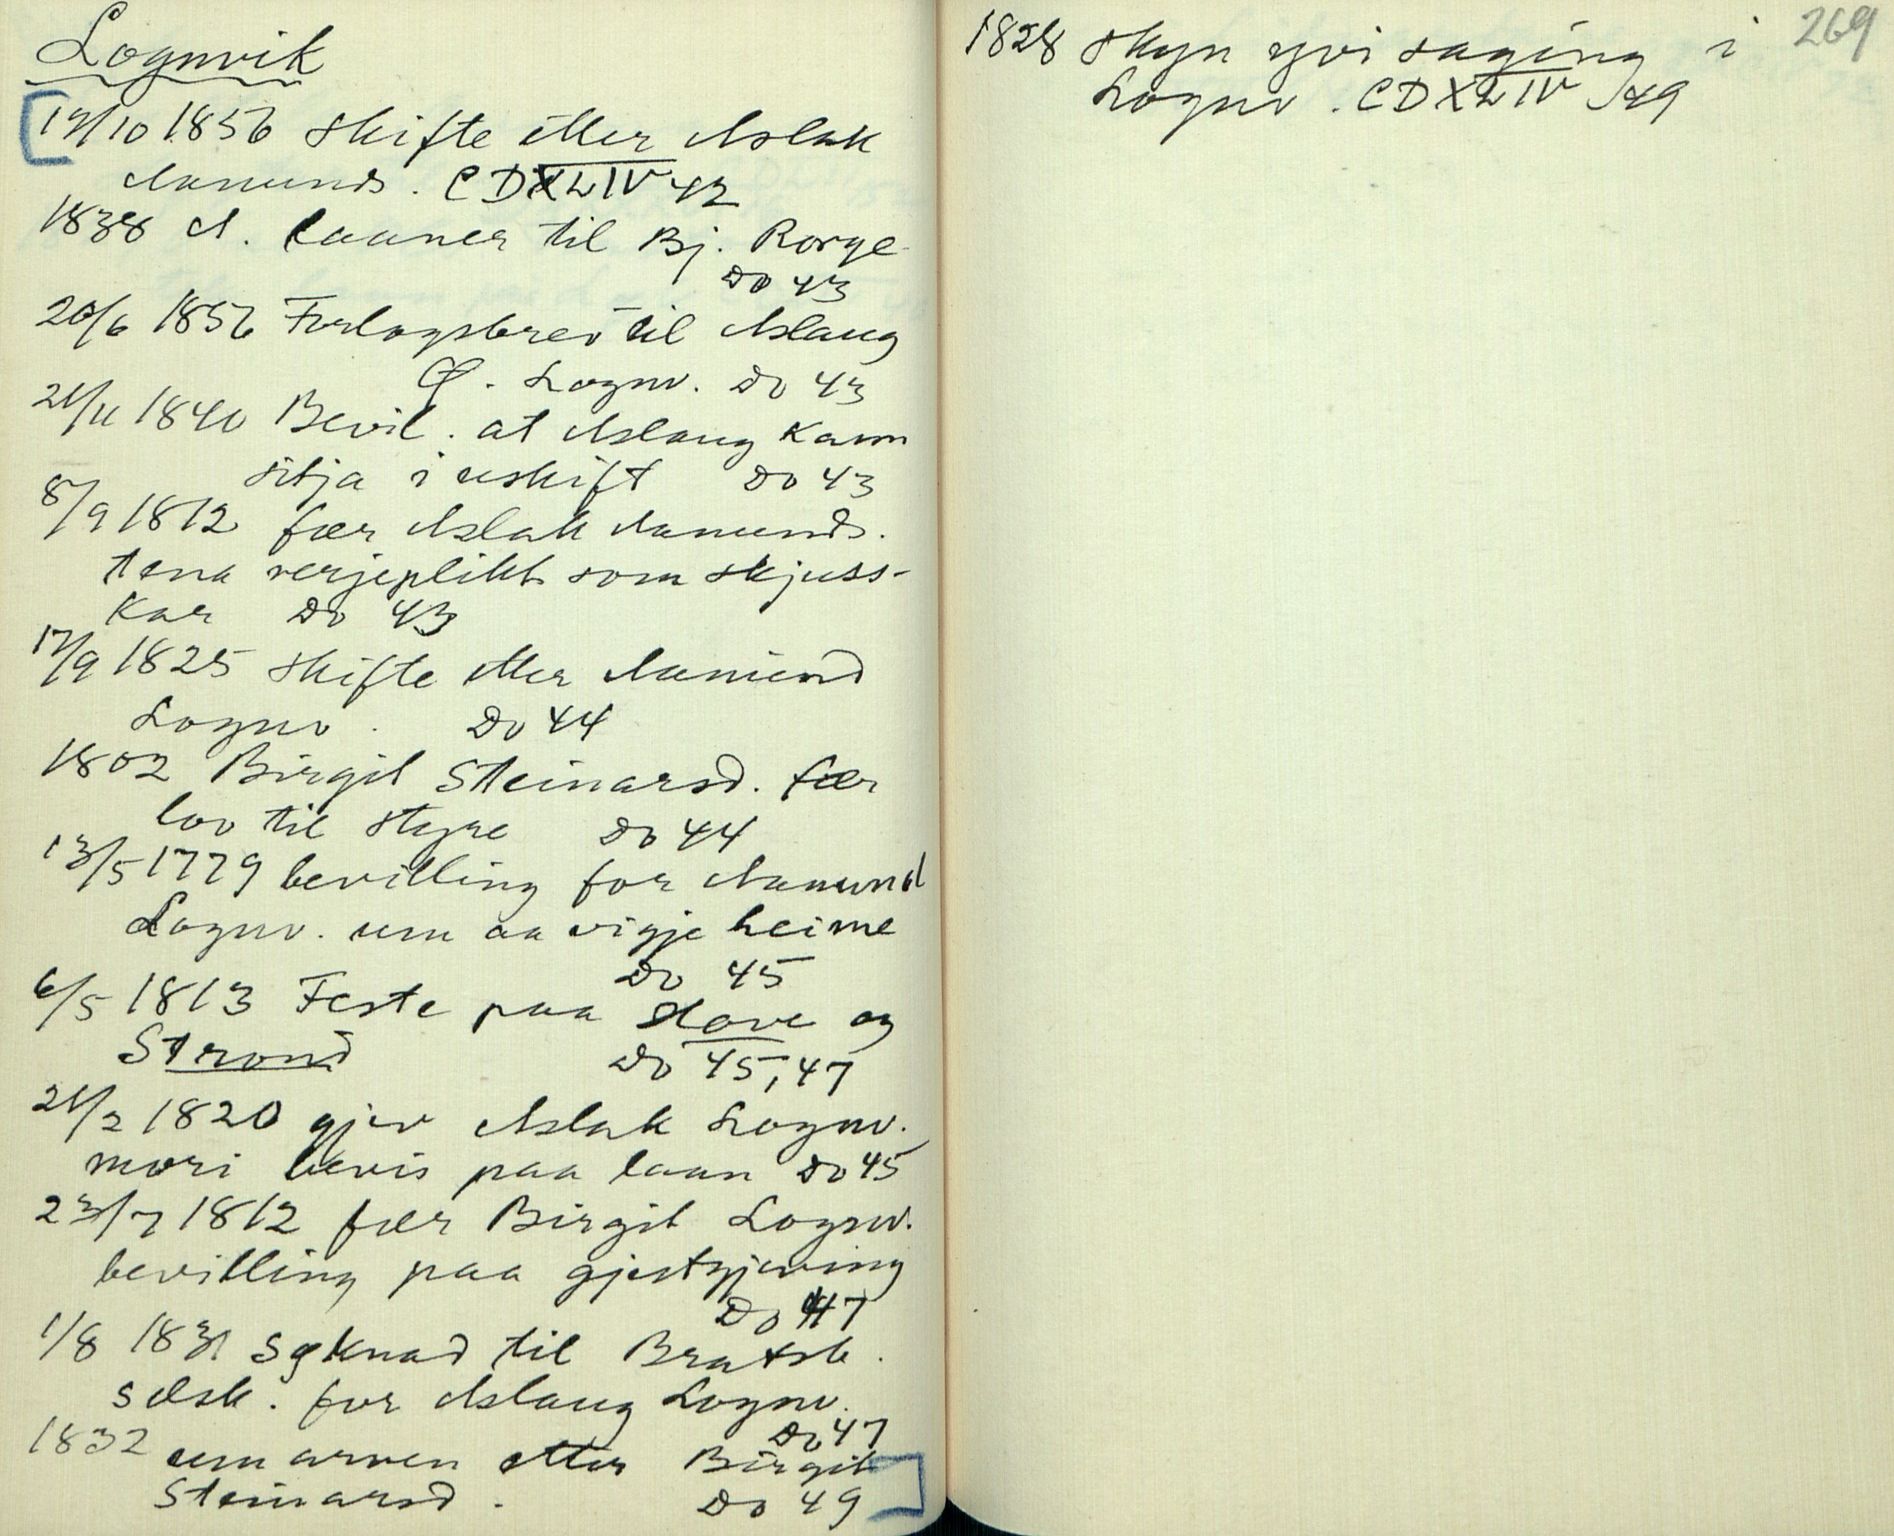 Lognvik
17/10 1856 Skifte etter Aslak
Aamunds. CDXLIV 42
1838 A. laaner til Bj. Rorge
Do 43
20/6 1856 Forlogsbrev til Aslaug
Ø. Lognv. Do 43
21/11 1840 Bevil. at Aslaug kann
sitja i uskift Do 43
8/9 1812 fær Aslak Aamunds.
tena verjeplikt som skjuss-
kar Do 43
17/9 1825 Skifte etter Aamund
Lognv. Do 44
1802 Birgit Steinarsd. fær
lov til styre Do 44
13/5 1779 bevilling for Aamund
Lognv. um aa vigje heime
Do 45
6/5 1813 Feste paa og
Strond Do 45, 47
21/2 1820 gjev Aslak Lognv.
mori bevis paa laan Do 45
23/7 1812 fær Birgit Lognv.
bevilling paa gjestgjeving
Do 47
1/8 1831 Søknad til Bratsb.
selsk. for Aslaug Lognv.
Do 47
1832 um arven etter Birgit
Steinarsd. Do 49
269
1828 Skyn yvi saging i
Lognv. CDXLIV 49